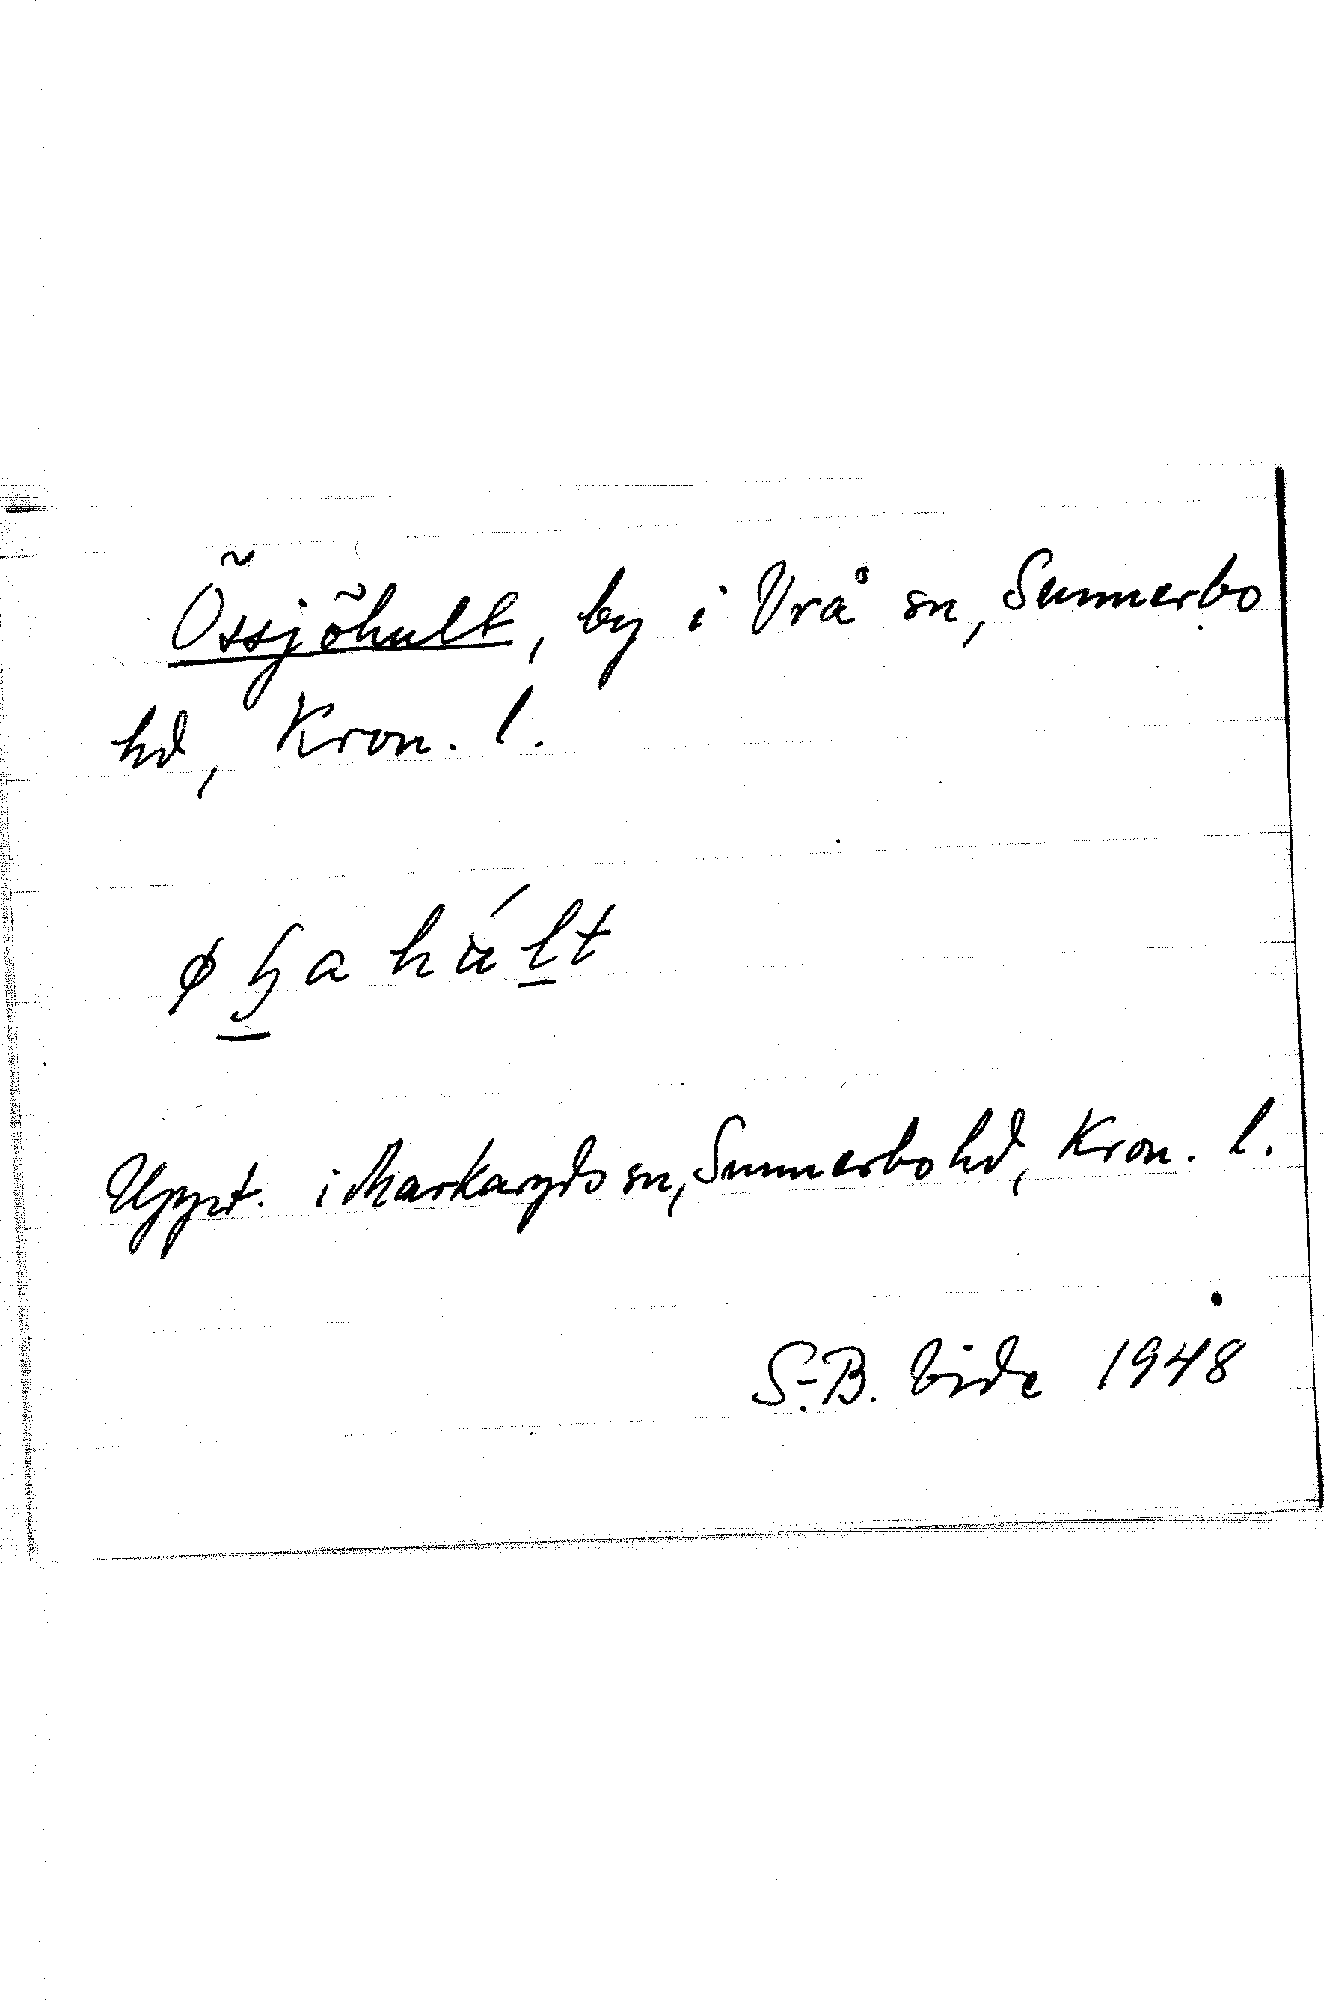 Össjöhult, by i Vrå sn, Sunnerbo
hd, Kron. l.
hu̇́lt
Uppt. i Markaryds sn, Sunnerbo hd, Kron. l.
S.-B. Vide 1948